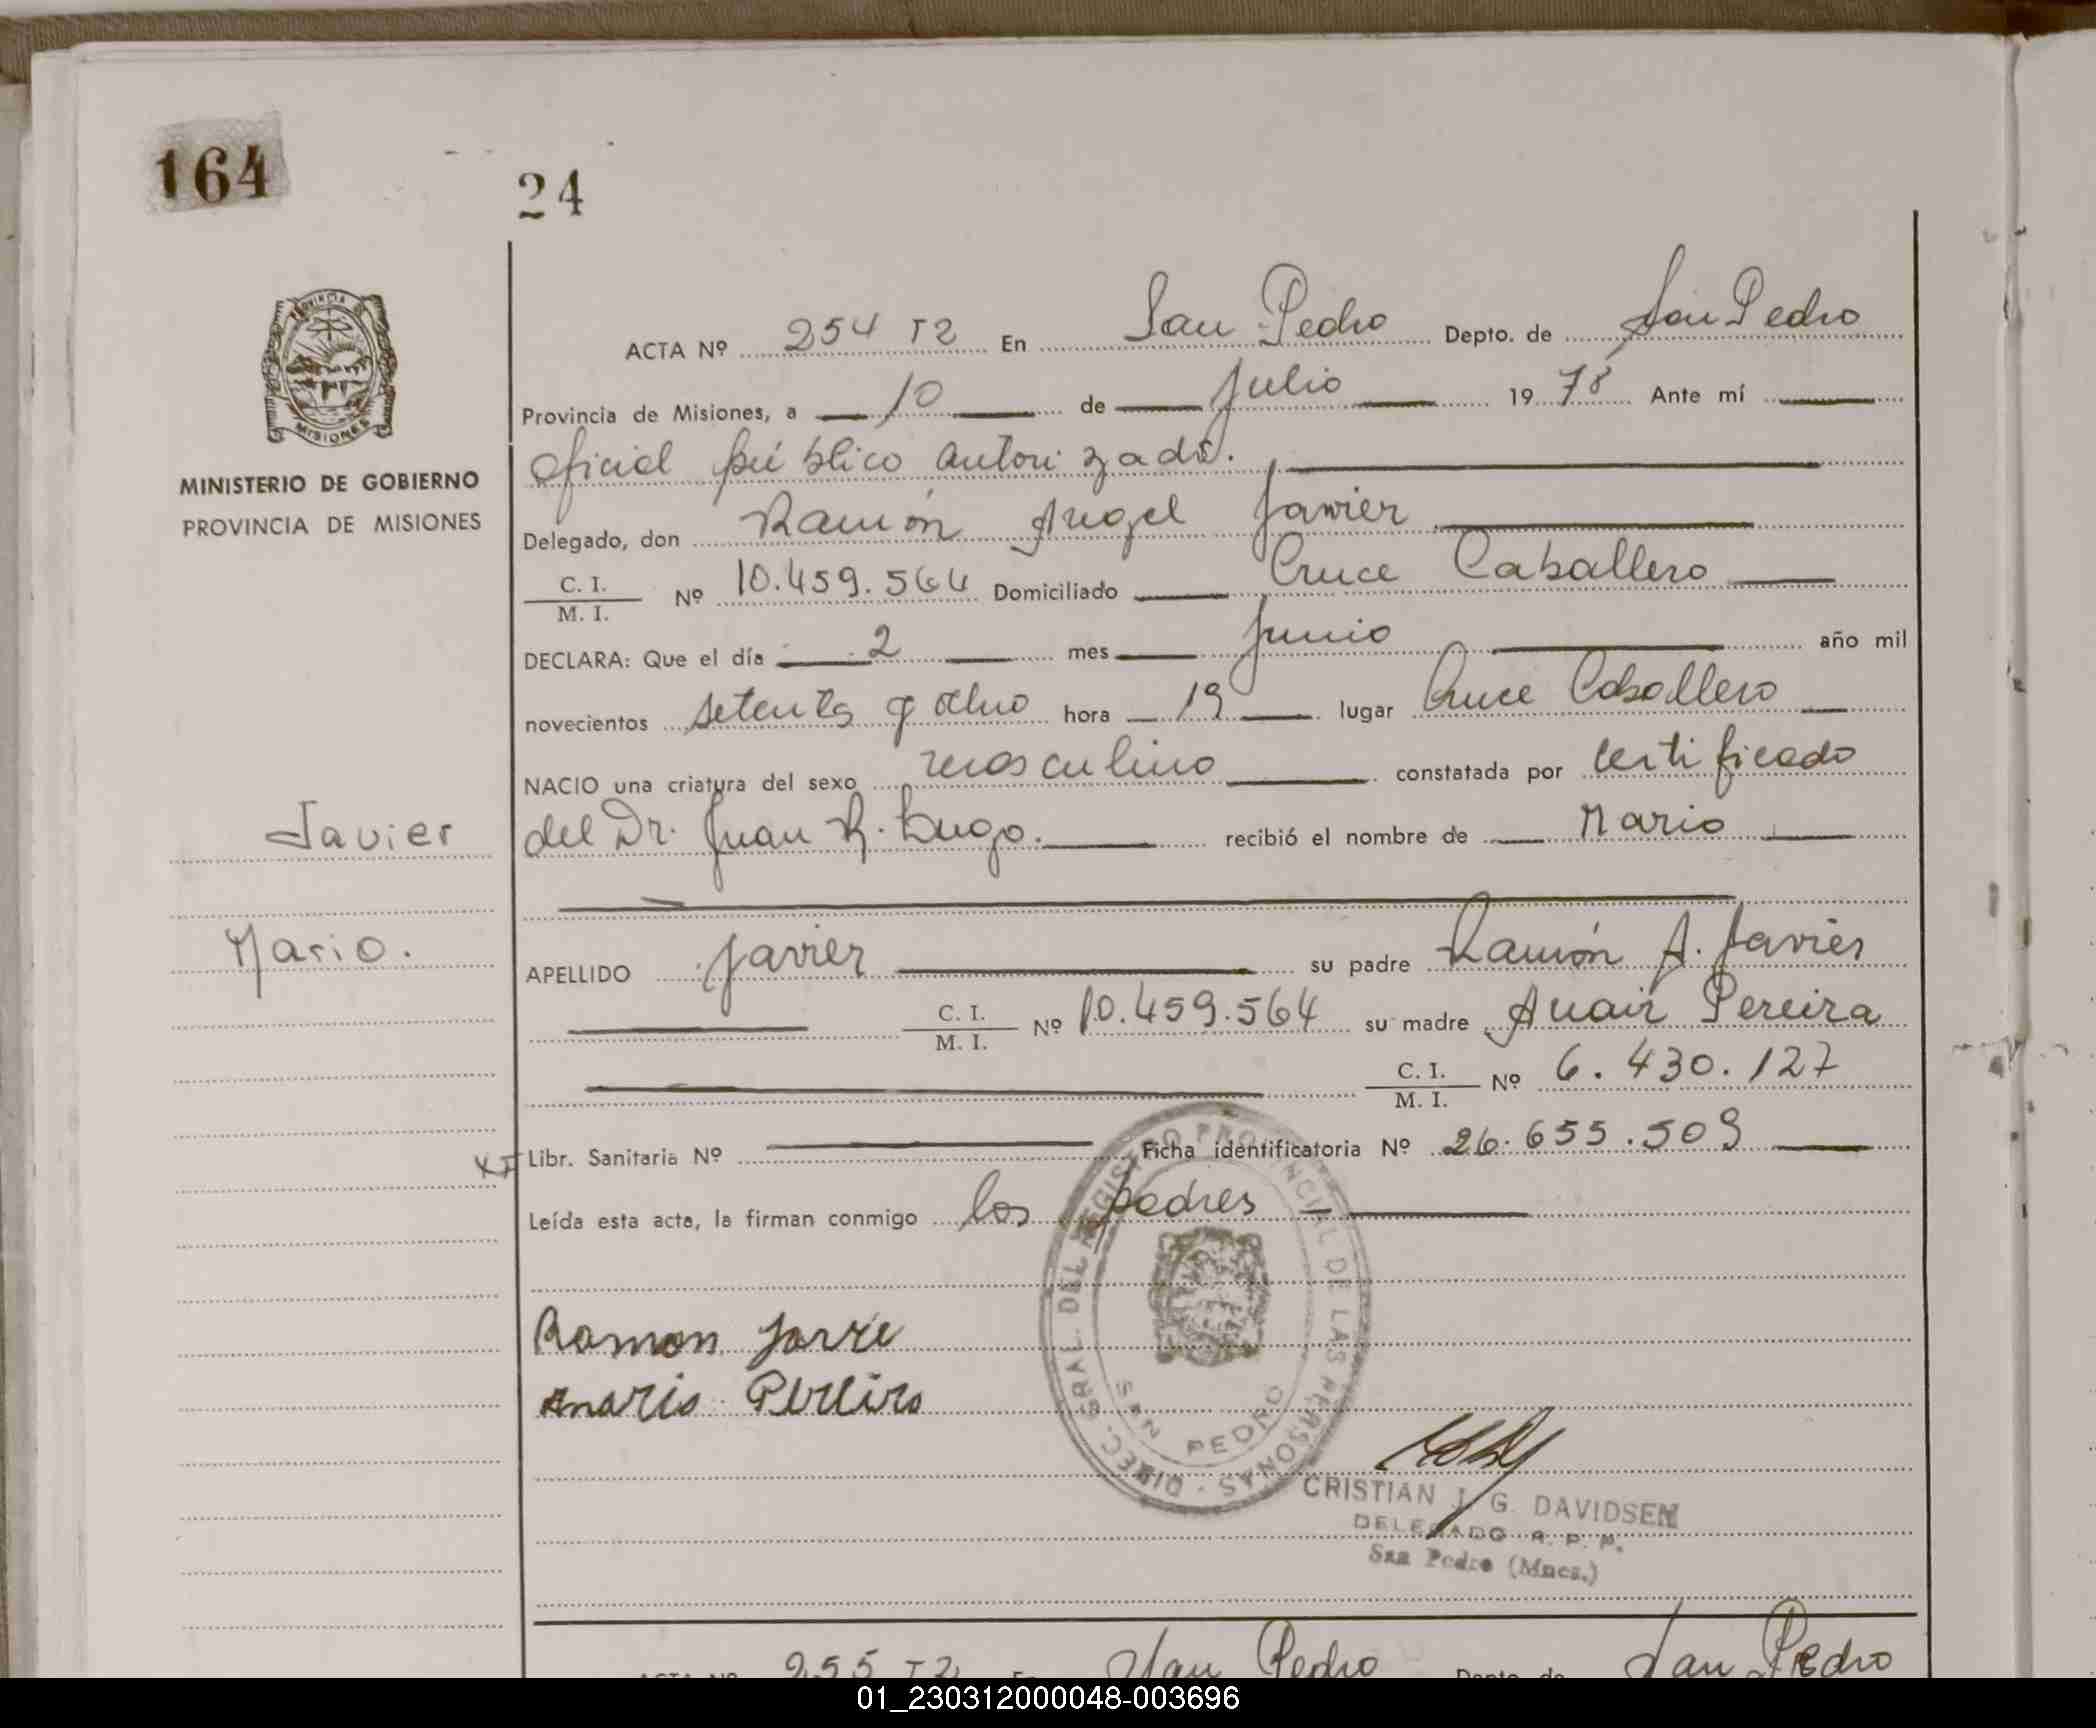 164
24
PROVINCIA DE
MISIONES
MINISTERIO DE GOBIERNO
PROVINCIA DE MISIONES
Javier
Mario.
ACTA Nº 254 T2 En San Pedro Depto. de San Pedro
Provincia de Misiones, a 10 de Julio 1978 Ante mí
Oficial público autorizado.
Delegado, don Ramón Angel Javier
C. I.
M. I. Nº 10.459.564 Domiciliado Cruce Caballero
DECLARA: Que el día 2 mes Junio año mil
novecientos setenta y ocho hora 19 lugar Cruce Caballero
NACIO una criatura del sexo masculino constatada por certificado
del Dr. Juan R. Lugo. recibió el nombre de Mario
APELLIDO Javier su padre Ramón A. Javier
C. I.
M. I. Nº 10.459.564 su madre Anair Pereira
C. I.
M. I. Nº 6.430.127
Libr. Sanitaria Nº Ficha identificatoria Nº 26.655.509
Leída esta acta, la firman conmigo los padres
DIREC. GRAL. DEL REGISTRO PROVINCIAL DE LAS PERSONAS
SAN PEDRO
Ramon Javie
Anaris Pereira
CRISTIAN J. G. DAVIDSEN
DELEGADO R. P. P.
San Pedro (Mnes.)
ACTA Nº 255 T2 En San Pedro Depto. de San Pedro
01_230312000048-003696